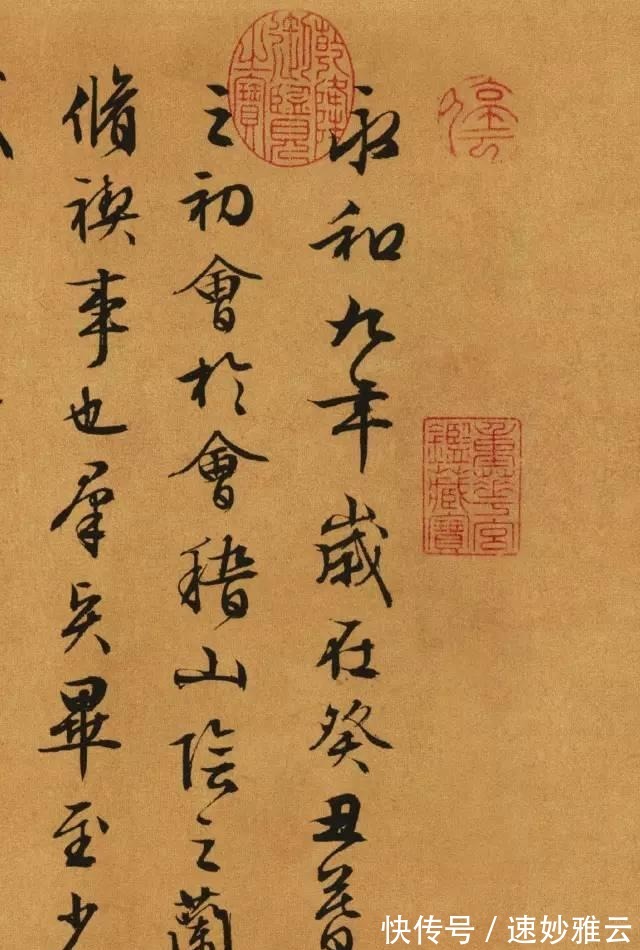 乾隆御覽之寶
永和九年歲在癸丑暮
之初會於會稽山陰之蘭
脩禊事也羣賢畢至少
重華宮鑑藏寶
快传号 / 速妙雅云